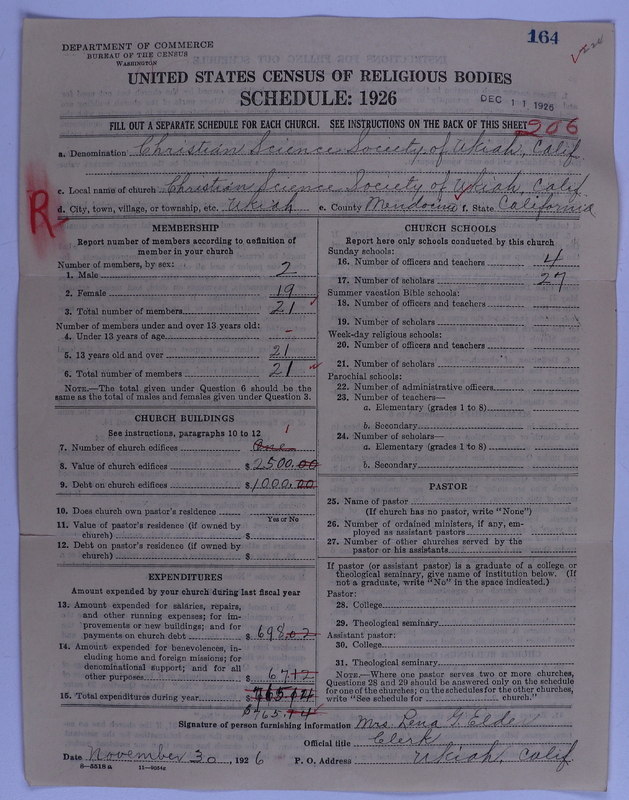 164
DEPARTMENT OF COMMERCE
BUREAU OF THE CENSUS
WASHINGTON
UNITED STATES CENSUS OF RELIGIOUS BODIES
SCHEDULE: 1926
DEC 11 1926
FILL OUT A SEPARATE SCHEDULE FOR EACH CHURCH. SEE INSTRUCTIONS ON THE BACK OF THIS SHEET
206
a. Denomination Christian Science Society of Ukiah, Calif.
c. Local name of church Christian Science Society of Ukiah, Calif.
R
d. City, town, village, or township, etc. Ukiah e. County Mendocino f. State California
MEMBERSHIP
Report number of members according to definition of
member in your church
Number of members, by sex:
1. Male 2
2. Female 19
3. Total number of members 21
Number of members under and over 13 years old:
4. Under 13 years of age –
5. 13 years old and over 21
6. Total number of members 21
NOTE.—The total given under Question 6 should be the
same as the total of males and females given under Question 3.
CHURCH BUILDINGS
See instructions, paragraphs 10 to 12
1
7. Number of church edifices One
8. Value of church edifices $2500.00
9. Debt on church edifices $1000.00
10. Does church own pastor's residence
Yes or No
11. Value of pastor's residence (if owned by
church) $
12. Debt on pastor's residence (if owned by
church) $
EXPENDITURES
Amount expended by your church during last fiscal year
13. Amount expended for salaries, repairs,
and other running expenses; for im-
provements or new buildings; and for
payments on church debt $698.02
14. Amount expended for benevolences, in-
cluding home and foreign missions; for
denominational support; and for all
other purposes $67.12
15. Total expenditures during year $765.14
$765.14
CHURCH SCHOOLS
Report here only schools conducted by this church
Sunday schools:
16. Number of officers and teachers 4
17. Number of scholars 27
Summer vacation Bible schools:
18. Number of officers and teachers
19. Number of scholars
Week-day religious schools:
20. Number of officers and teachers
21. Number of scholars
Parochial schools:
22. Number of administrative officers
23. Number of teachers—
a. Elementary (grades 1 to 8)
b. Secondary
24. Number of scholars—
a. Elementary (grades 1 to 8)
b. Secondary
PASTOR
25. Name of pastor
(If church has no pastor, write "None")
26. Number of ordained ministers, if any, em-
ployed as assistant pastors
27. Number of other churches served by the
pastor or his assistants
If pastor (or assistant pastor) is a graduate of a college or
theological seminary, give name of institution below. (If
not a graduate, write "No" in the space indicated.)
Pastor:
28. College
29. Theological seminary
Assistant pastor:
30. College
31. Theological seminary
NOTE.—Where one pastor serves two or more churches,
Questions 28 and 29 should be answered only on the schedule
for one of the churches; on the schedules for the other churches,
write "See schedule for church."
Signature of person furnishing information Mrs. Rena G. Elder
Official title Clerk
Date November 30, 1926 P. O. Address Ukiah, Calif.
8—5518a 11—9054a